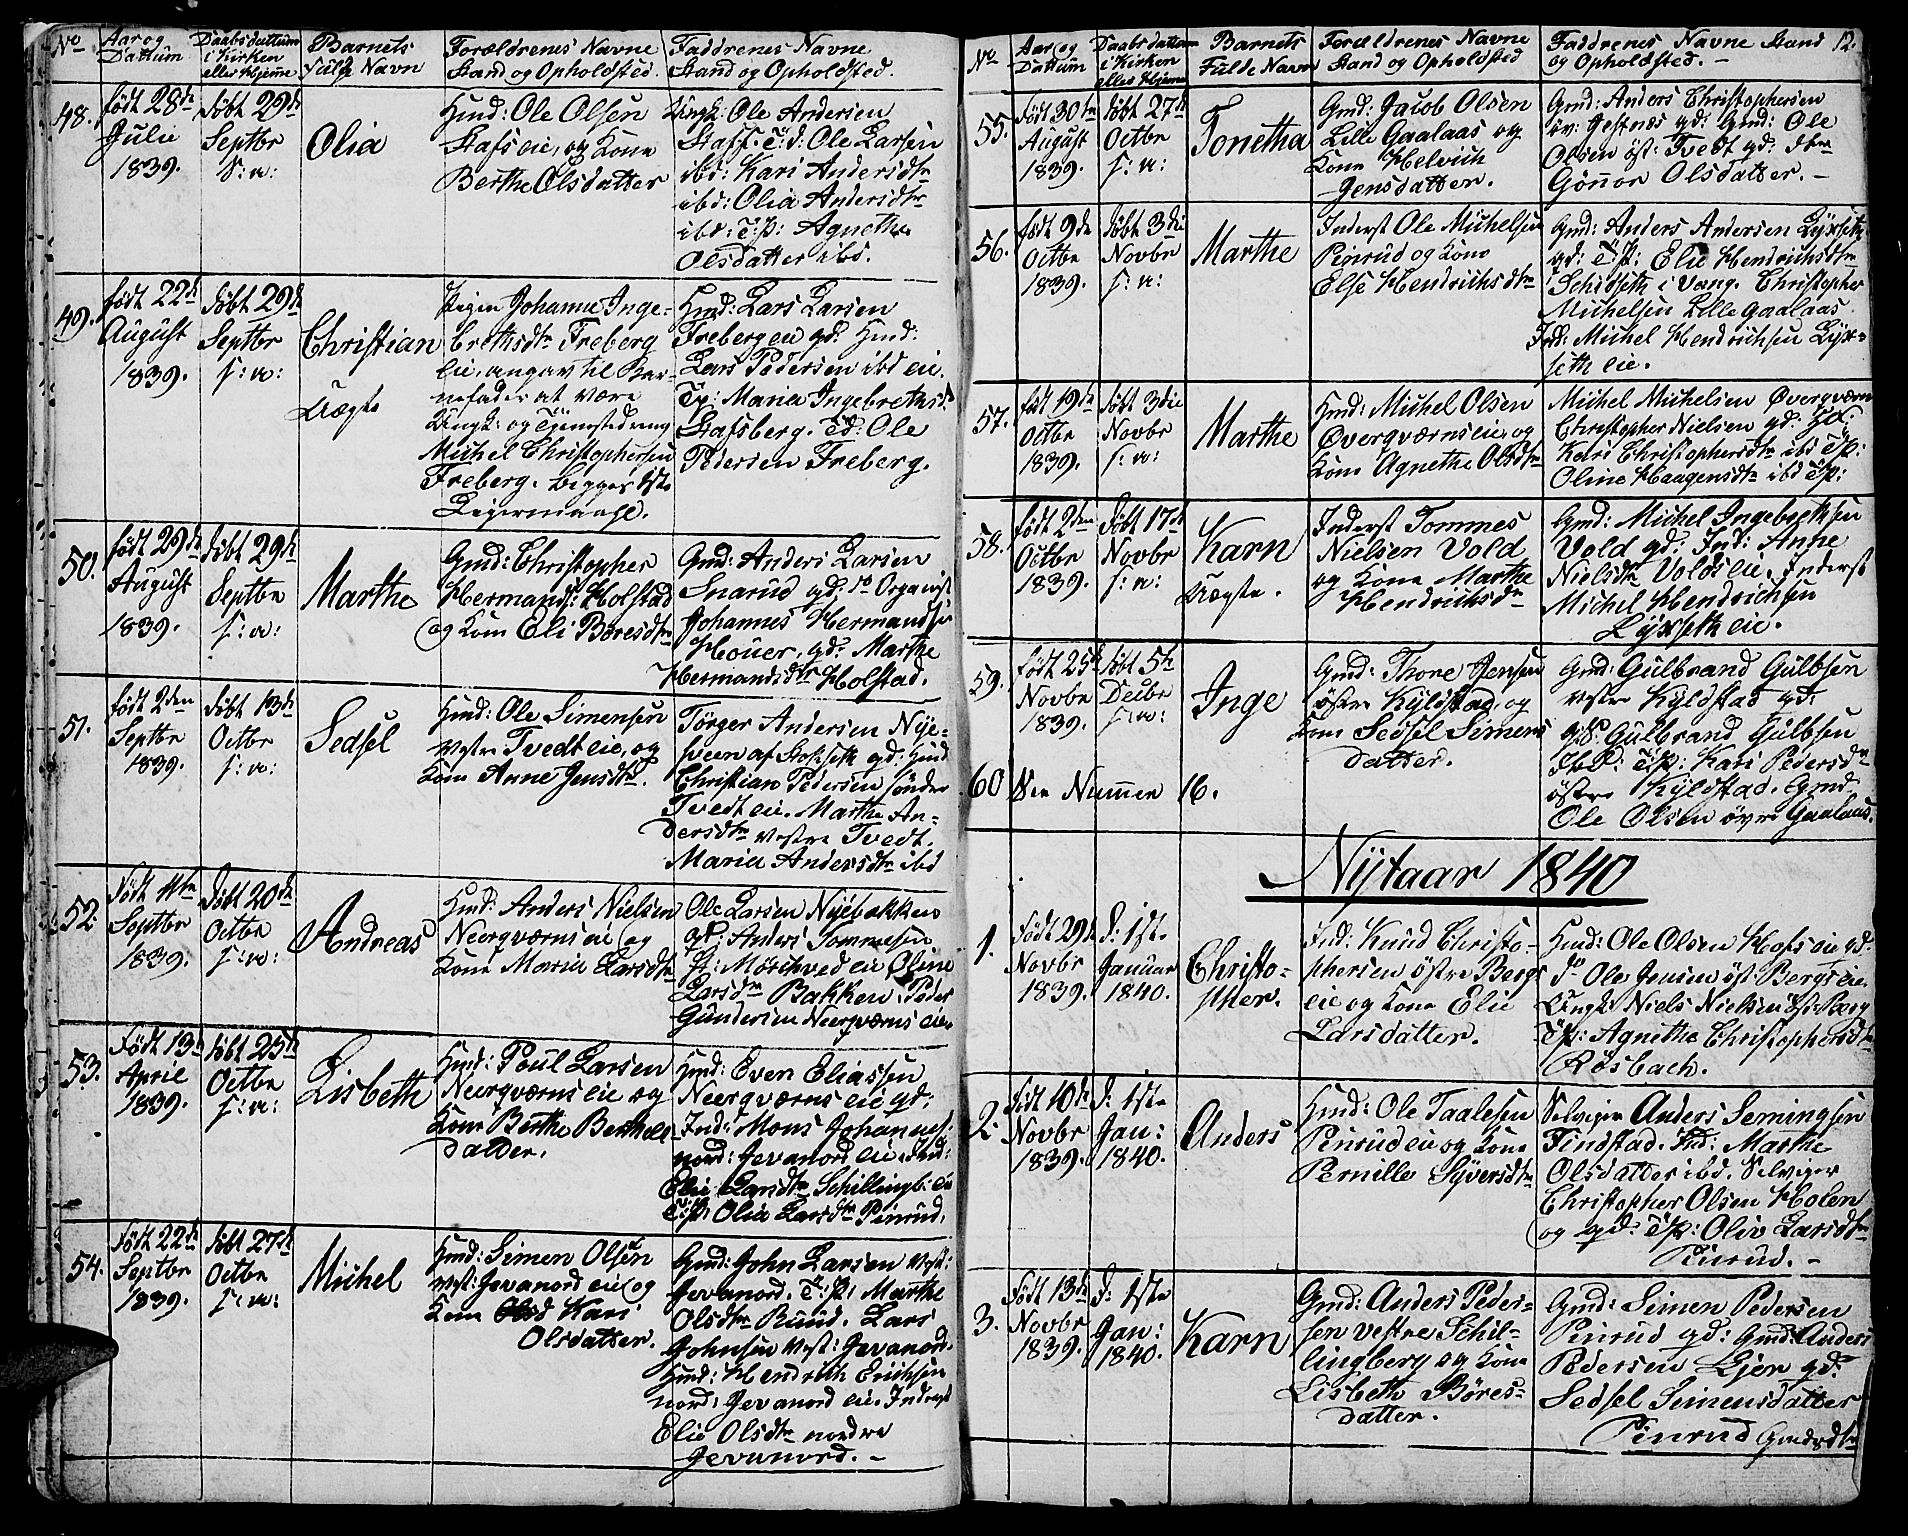 No
Aar og
Dattum
Daabsdattum
i Kirken
eller Hjeme
Barnets
fulde Navn
Forældrenes Navne
Stand og Opholdsted.
Faddrenes Navne
Stand og Opholdsted.
48.
født 28de
Julii
1839.
döbt 29de
Septbr
S: a:
Olia
Huusmd: Ole Olsen
Stafs eie, og Kone
Berthe Olsdatter
Ungk: Ole Andersen
Staff. T: d: Ole Larsen
ibd: Kari Andersdtr
ibd: Olia Andersdtr
ibd: T: p: Agnethe
Olsdatter ibd.
49.
født 22de
August
1839.
döbt 29de
Septbr
S: a:
Christian
Uægte
Pigen Johanne Inge-
brethsdtr Freberg
eie, angav til Bar-
nefader at være
Ungk: og Tjenstedreng
Michel Christophersen
Freberg. begges 1ste
Leiermaal.
Hmd: Lars Larsen
Frebergen gd: Hmd:
Lars Pedersen ibd eie.
Tp: Maria Ingebrethsd:
Stafsberg. Td: Ole
Pedersen Freberg.
50.
født 29de
August
1839.
döbt 29de
Septbr
S: a:
Marthe
Gmd: Christopher
Hermands: Holstad
og Kone Eli Børesdtr
Gmd: Anders Larsen
Snarud gd: So Organist
Johannes Hermandsen
Houer, gd: Marthe
Hermandsdtr Holstad.
51.
født 2den
Septbr
1839.
döbt 13de
Octbr
S: a:
Sedsel
Hmd: Ole Simensen
Vestre Tvedt eie, og
Kone Anne Jensdtr.
Törger Andersen Nÿe-
sveen af Stokseth gd: Hmd
Christian Pedersen söndre
Tvedt eie. Marthe An-
dersdtr Vestre Tvedt.
Maria Andersdtr ibd
52.
Født 11te
Septbr
1839.
döbt 20de
Octbr
S: a:
Andreas
Hmd: Anders Nielsen
Neergværns eie og
Kone Maria Larsdtr
Ole Larsen Nÿebakken
gd: Anders Tommesen
p: Mörchved eie Oline
Larsdtr Bakken. Peder
Gundersen Neergværns eie.
53.
Født 13de
April
1839.
döbt 25de
Octbr
S: a:
Lisbeth
Hmd: Poul Larsen
Neergværns eie og
Kone Berthe Berthels-
datter.
Hmd: Even Eliassen
Neergværns eie gd:
Ind: Mons Johannes:
nord: Jevanord eie. Ind:
Elie Larsdtr Schillingb: eie
T: p: Olia Larsdtr Pinrud.
54.
Født 22de
Septbr
1839.
döbt 27de
Octbr
S: a:
Michel
Hmd: Simen Olsen
vest: Jevanord eie og
Kone Kari
Olsdatter.
Gmd: John Larsen vest:
Jevanord. T: p: Marthe
Olsdtr Ruud. Lars
Johnsen vest: Jevanord.
Hmd: Hendrich Erichsen
nord: Jevanord eie. Inderst
Elie Olsdtr nordre
Jevanord. -
No
Aar og
Dattum
Daabsdattum
i Kirken
eller Hjeme
Barnets
Fulde Navn
Forældrenes Navne
Stand og Opholdsted
Faddrenes Navne Stand
og Opholdsted. -
12.
55.
Født 30te
August
1839.
döbt 27de
Octbr
S: a:
Tonetha
Gmd: Jacob Olsen
Lille Gaalaas og
Kone Helvich
Jensdatter.
Gmd: Anders Christophersen
öv: Jestnæs gd: Gmd: Ole
Olsen öst: Tvedt gd: dtr
Gönnor Olsdatter. -
56.
født 9de
Octbr
1839.
döbt 3die
Novbr
S: a:
Marthe
Inderst Ole Michelsen
Pinrud og Kone
Else Hendrichsdtr
Gmd: Anders Andersen Lÿxseth
gd: T: p: Elie Hendrichsdtr
Schidseth i Vang. Christopher
Michelsen Lille Gaalaas
Ind: Michel Hendrichsen Lÿx-
seth eie.
57.
født 19de
Octbr
1839.
döbt 3die
Novbr
S: a:
Marthe
Hmd: Michel Olsen
Øvergværns eie, og
Kone Agnethe Olsdtr
Michel Michelsen Øvergværn
Christopher Nielsen gd:
Kari Christophersdtr ibd T: p:
Oline Haagensdtr ibd T: p:
58.
født 2den
Octbr
1839.
Döbt 17de
Novbr
S: a:
Karn
Uægte.
Inderst Tommes
Nielsen Vold
og Kone Marthe
Hendrichsdtr
Gmd: Michel Ingebrethsen
Vold gd: Ind: Anne
Nielsdtr Volds eie. Inderst
Michel Hendrichsen
Lÿxseth eie.
59.
født 25de
Novbr
1839.
döbt 5te
Decbr
S: a:
Inge
Gmd: Thore Jensen
östre Kÿldstad, og
Kone Sedsel Simens
datter.
Gmd: Gulbrand Gulbsen
vestre Kÿldstad gd:
gS: Gulbrand Gulbsen
Ibd: T: p: Kari Pedersdtr
östre Kÿldstad. Gmd
Ole Olsen övre Gaalaas.
60
See Nummer 16.
Nÿtaar 1840
1.
født 29de
Novbr
1839.
D: 1ste
Januar
1840.
Christo-
pher.
Ind: Knud Christo-
phersen östre Bergs
eie og Kone Elie
Larsdatter.
Hmd: Ole Olsen Hofs eie gd:
do Ole Jensen öst: Bergs eie.
Ungk: Niels Nielsen öst: Berg
T: p: Agnethe Christophersdtr
Rösbach.
2.
født 10de
Novbr
1839.
D: 1ste
Jan:
1840.
Anders
Hmd: Ole Taalesen
Pinrud eie og Kone
Pernille Sÿversdtr
Selveier Anders Semingsen
Findstad. Ind: Marthe
Olsdatter ibd. Selveier
Christopher Olsen Holen
og gd: T: p: Oliv Larsdtr
Pinrud. -
3.
Født 13de
Novbr
1839.
D: 1ste
Jan:
1840.
Karn
Gmd: Anders Peder-
sen vestre Schil-
lingberg og Kone
Lisbeth Böres-
datter.
Gmd: Simen Pedersen
Pinrud gd: Gmd: Anders
Pedersen Ljer gd:
Sedsel Simensdatter
Pinrud Gmdsdtr